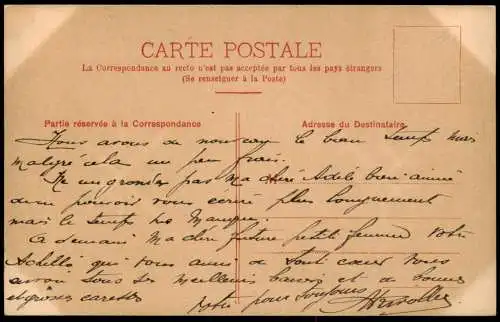 CARTE POSTALE
La Correspondance au recto n'est pas acceptée par tous les pays étrangers
(Se renseigner à la Poste)
Partie réservée à la Correspondance
Adresse du Destinataire
Nous avons de nouveau le beau temps mais
malgré cela un peu frais.
Ne me grondez pas Ma chère Adèle bien aimée
de pouvoir vous écrire plus longuement
mais le temps me manque.
à demain Ma chère future petite femme Votre
Achille qui vous aime de tout cœur Vous
envoie tous ses meilleurs baisers et de bonnes
et grosses caresses
Votre pour toujours